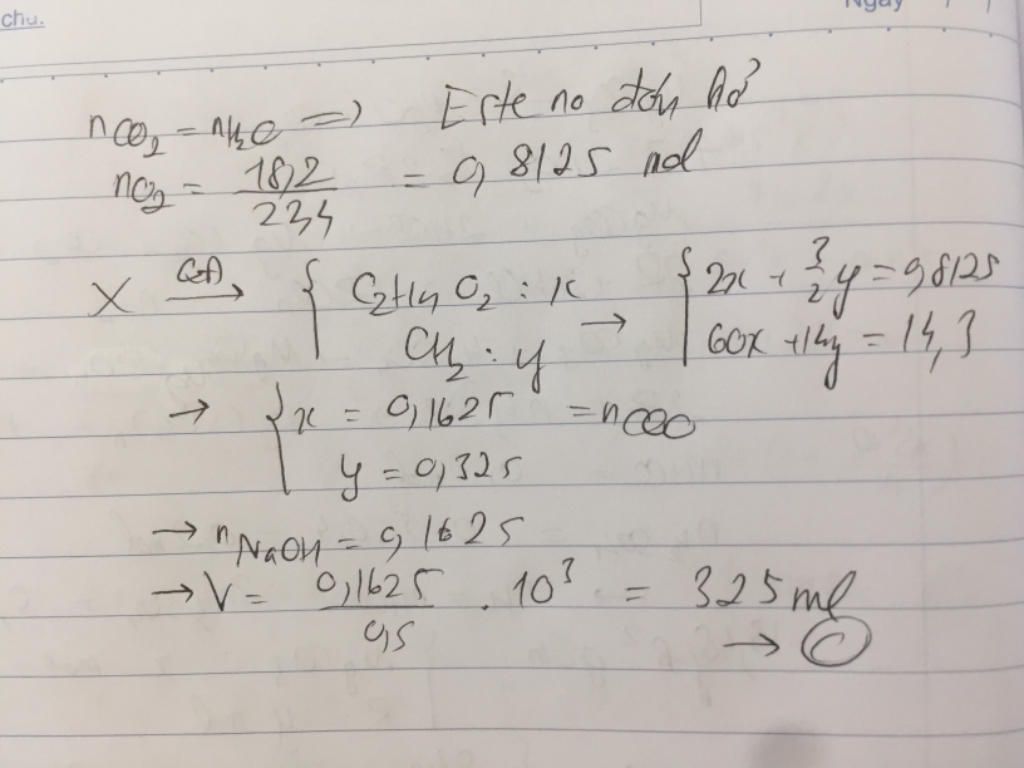 chu.
Ngày / /
nCO₂ = nH₂O => Este no đơn hở
nO₂ = 18,2 / 22,4 = 0,8125 mol
X → { C₂H₄O₂ : x → { 2x + 3/2 y = 0,8125
CH₂ : y 60x + 14y = 14,3
→ { x = 0,1625 = nCOO
y = 0,325
→ nNaOH = 0,1625
→ V = 0,1625 / 0,5 . 10³ = 325 ml
→ C